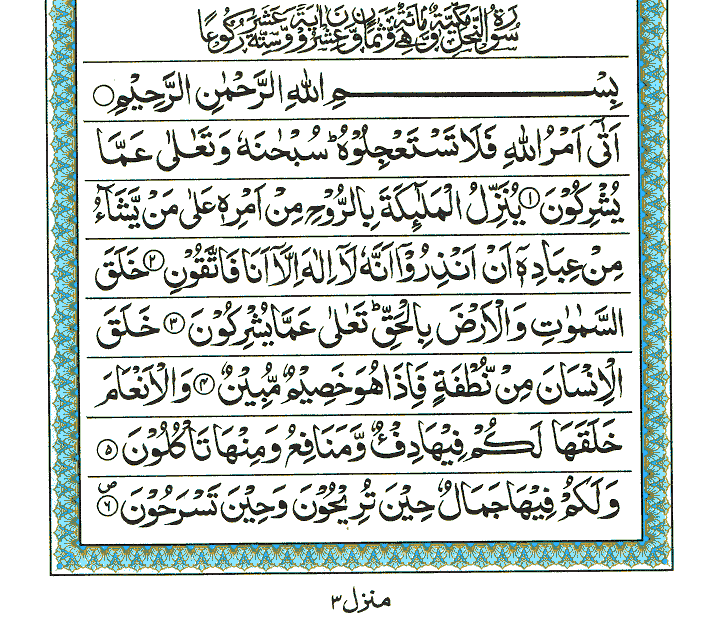 سُوْرَةُ النَّحْلِ مَكِّيَّةٌ وَّهِيَ مِائَةٌ وَّثَمَانٌ وَّعِشْرُوْنَ اٰيَةً وَّسِتَّةَ عَشَرَ رُكُوْعًا
بِسْمِ اللهِ الرَّحْمٰنِ الرَّحِيْمِ ○
اَتٰۤى اَمْرُ اللهِ فَلَا تَسْتَعْجِلُوْهُ ؕ سُبْحٰنَهٗ وَتَعٰلٰى عَمَّا
يُشْرِكُوْنَ ۝۱ يُنَزِّلُ الْمَلٰٓئِكَةَ بِالرُّوْحِ مِنْ اَمْرِهٖ عَلٰى مَنْ يَّشَآءُ
مِنْ عِبَادِهٖۤ اَنْ اَنْذِرُوْۤا اَنَّهٗ لَاۤ اِلٰهَ اِلَّاۤ اَنَا فَاتَّقُوْنِ ۝۲ خَلَقَ
السَّمٰوٰتِ وَالْاَرْضَ بِالْحَقِّ ؕ تَعٰلٰى عَمَّا يُشْرِكُوْنَ ۝۳ خَلَقَ
الْاِنْسَانَ مِنْ نُّطْفَةٍ فَاِذَا هُوَ خَصِيْمٌ مُّبِيْنٌ ۝۴ وَالْاَنْعَامَ
خَلَقَهَا لَكُمْ فِيْهَا دِفْءٌ وَّمَنَافِعُ وَمِنْهَا تَاْكُلُوْنَ ۝۵
وَلَكُمْ فِيْهَا جَمَالٌ حِيْنَ تُرِيْحُوْنَ وَحِيْنَ تَسْرَحُوْنَ ۝۶ ص
منزل ۳